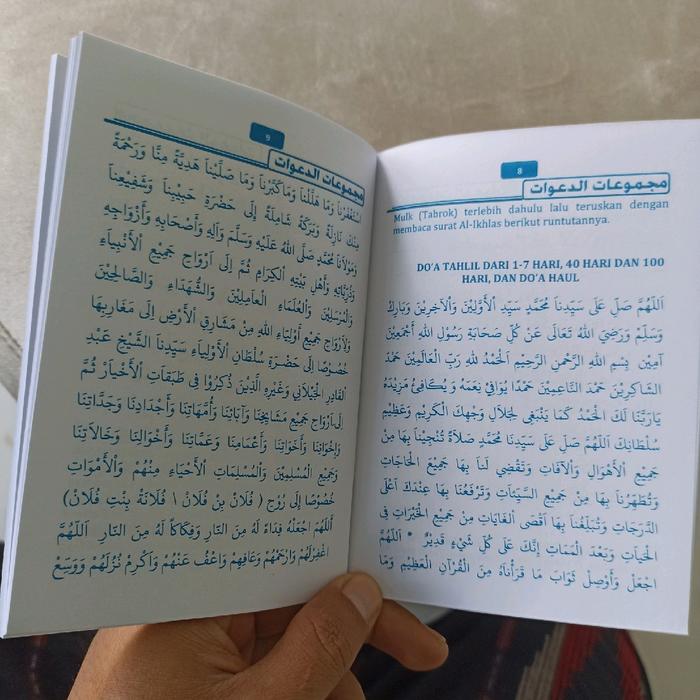 8
مجموعات الدعوات
Mulk (Tabrok) terlebih dahulu lalu teruskan dengan
membaca surat Al-Ikhlas berikut runtutannya.
DO'A TAHLIL DARI 1-7 HARI, 40 HARI DAN 100
HARI, DAN DO'A HAUL
اَللّٰهُمَّ صَلِّ عَلَى سَيِّدِنَا مُحَمَّدٍ سَيِّدِ الْأَوَّلِيْنَ وَالْآخِرِيْنَ وَبَارِكْ
وَسَلِّمْ وَرَضِيَ اللهُ تَعَالَى عَنْ كُلِّ صَحَابَةِ رَسُوْلِ اللهِ أَجْمَعِيْنَ
آمِيْنَ بِسْمِ اللهِ الرَّحْمٰنِ الرَّحِيْمِ اَلْحَمْدُ لِلهِ رَبِّ الْعَالَمِيْنَ حَمْدَ
الشَّاكِرِيْنَ حَمْدَ النَّاعِمِيْنَ حَمْدًا يُوَافِيْ نِعَمَهُ وَيُكَافِئُ مَزِيْدَهُ
يَارَبَّنَا لَكَ الْحَمْدُ كَمَا يَنْبَغِى لِجَلَالِ وَجْهِكَ الْكَرِيْمِ وَعَظِيْمِ
سُلْطَانِكَ اَللّٰهُمَّ صَلِّ عَلَى سَيِّدِنَا مُحَمَّدٍ صَلَاةً تُنْجِيْنَا بِهَا مِنْ
جَمِيْعِ الْأَهْوَالِ وَالْآفَاتِ وَتَقْضِي لَنَا بِهَا جَمِيْعَ الْحَاجَاتِ
وَتُطَهِّرُنَا بِهَا مِنْ جَمِيْعِ السَّيِّئَاتِ وَتَرْفَعُنَا بِهَا عِنْدَكَ أَعْلَى
الدَّرَجَاتِ وَتُبَلِّغُنَا بِهَا أَقْصَى الْغَايَاتِ مِنْ جَمِيْعِ الْخَيْرَاتِ فِى
الْحَيَاتِ وَبَعْدَ الْمَمَاتِ إِنَّكَ عَلَى كُلِّ شَيْءٍ قَدِيْرٌ * اَللّٰهُمَّ
اجْعَلْ وَأَوْصِلْ ثَوَابَ مَا قَرَأْنَاهُ مِنَ الْقُرْآنِ الْعَظِيْمِ وَمَا
9
مجموعات الدعوات
اسْتَغْفَرْنَا وَمَا هَلَّلْنَا وَمَا كَبَّرْنَا وَمَا صَلَّيْنَا هَدِيَّةً مِنَّا وَرَحْمَةً
مِنْكَ نَازِلَةً وَبَرَكَةً شَامِلَةً إِلَى حَضْرَةِ حَبِيْبِنَا وَشَفِيْعِنَا
وَمَوْلَانَا مُحَمَّدٍ صَلَّى اللهُ عَلَيْهِ وَسَلَّمَ وَآلِهِ وَأَصْحَابِهِ وَأَزْوَاجِهِ
وَذُرِّيَّاتِهِ وَأَهْلِ بَيْتِهِ الْكِرَامِ ثُمَّ إِلَى أَرْوَاحِ جَمِيْعِ الْأَنْبِيَاءِ
وَالْمُرْسَلِيْنَ وَالْعُلَمَاءِ الْعَامِلِيْنَ وَالشُّهَدَاءِ وَالصَّالِحِيْنَ
وَلِأَرْوَاحِ جَمِيْعِ أَوْلِيَاءِ اللهِ مِنْ مَشَارِقِ الْأَرْضِ إِلَى مَغَارِبِهَا
خُصُوْصًا إِلَى حَضْرَةِ سُلْطَانِ الْأَوْلِيَاءِ سَيِّدِنَا الشَّيْخِ عَبْدِ
الْقَادِرِ الْجَيْلَانِي وَغَيْرِهِ الَّذِيْنَ ذُكِرُوْا فِى طَبَقَاتِ الْأَخْيَارِ ثُمَّ
إِلَى أَرْوَاحِ جَمِيْعِ مَشَايِخِنَا وَآبَائِنَا وَأُمَّهَاتِنَا وَأَجْدَادِنَا وَجَدَّاتِنَا
وَإِخْوَانِنَا وَأَخَوَاتِنَا وَأَعْمَامِنَا وَعَمَّاتِنَا وَأَخْوَالِنَا وَخَالَاتِنَا
وَجَمِيْعِ الْمُسْلِمِيْنَ وَالْمُسْلِمَاتِ الْأَحْيَاءِ مِنْهُمْ وَالْأَمْوَاتِ
خُصُوْصًا إِلَى رُوْحِ ( فُلَانْ بِنْ فُلَانْ \ فُلَانَةْ بِنْتِ فُلَانْ)
أَللّٰهُمَّ اجْعَلْهُ فِدَاءً لَهُ مِنَ النَّارِ وَفِكَاكًا لَهُ مِنَ النَّارِ اَللّٰهُمَّ
اغْفِرْلَهُمْ وَارْحَمْهُمْ وَعَافِهِمْ وَاعْفُ عَنْهُمْ وَأَكْرِمْ نُزُلَهُمْ وَوَسِّعْ